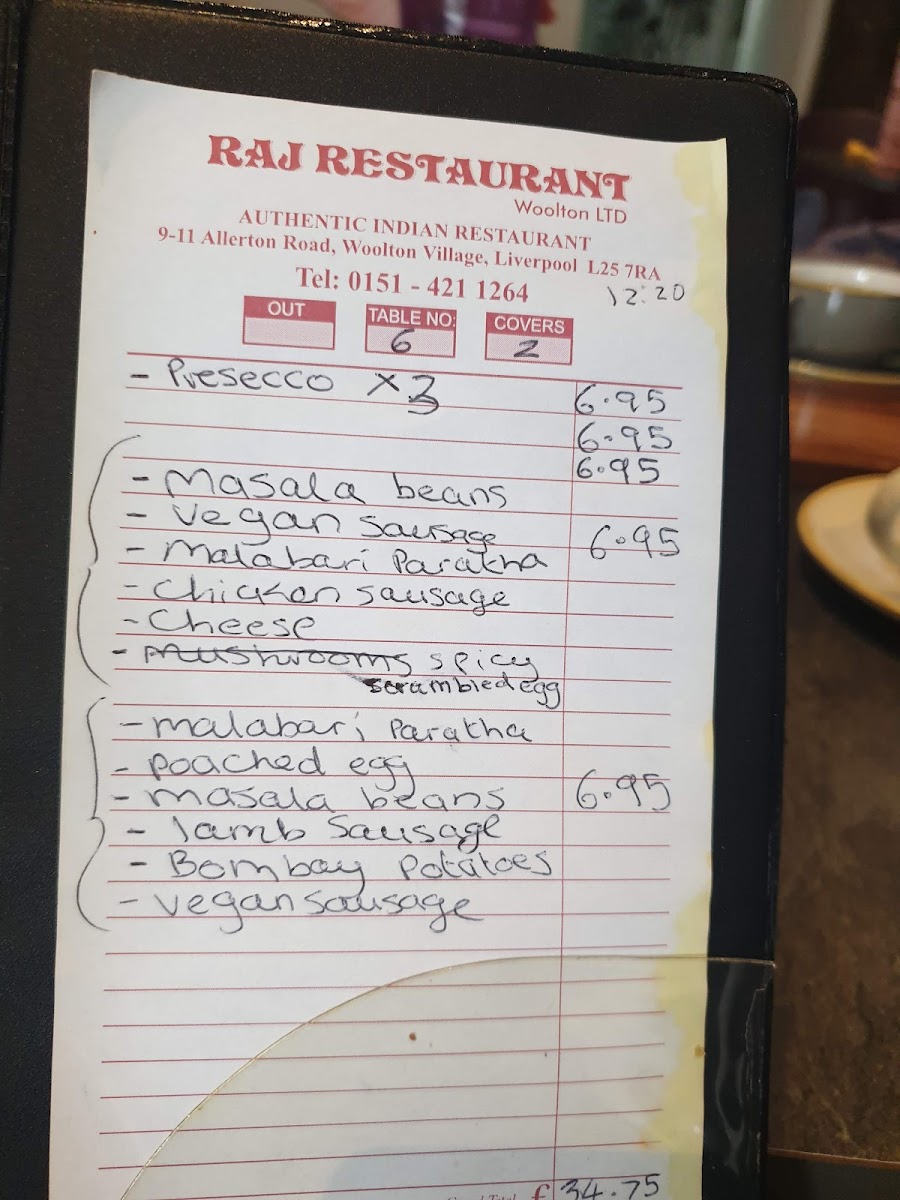 RAJ RESTAURANT
Woolton LTD
AUTHENTIC INDIAN RESTAURANT
9-11 Allerton Road, Woolton Village, Liverpool L25 7RA
Tel: 0151 - 421 1264
12:20
OUT TABLE NO: COVERS
6 2
- Presecco x3 6.95
6.95
6.95
- Masala beans
- vegan sausage 6.95
- malabari Paratha
- Chicken sausage
- Cheese
- mushrooms spicy
scrambled egg
- malabari Paratha
- poached egg
- masala beans 6.95
- lamb Sausage
- Bombay Potatoes
- vegan sausage
£ 34.75